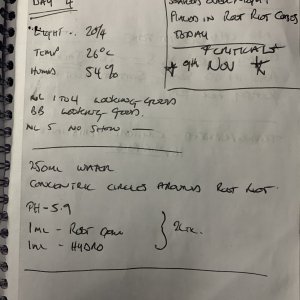 DAY 4
LIGHT... 20/4
TEMP 26°C
HUMID 54%
NL 1 TO 4 LOOKING GOOD
BB LOOKING GOOD.
NL 5 NO SHOW.
250ML WATER
CONCENTRIC CIRCLES AROUND ROOT RIOT.
PH-5.9
1ML - ROOT
1ML - HYDRO
} 2LTR.
OVERNIGHT
PLACED IN ROOT RIOT CUBES
TODAY
* 9TH NOV *